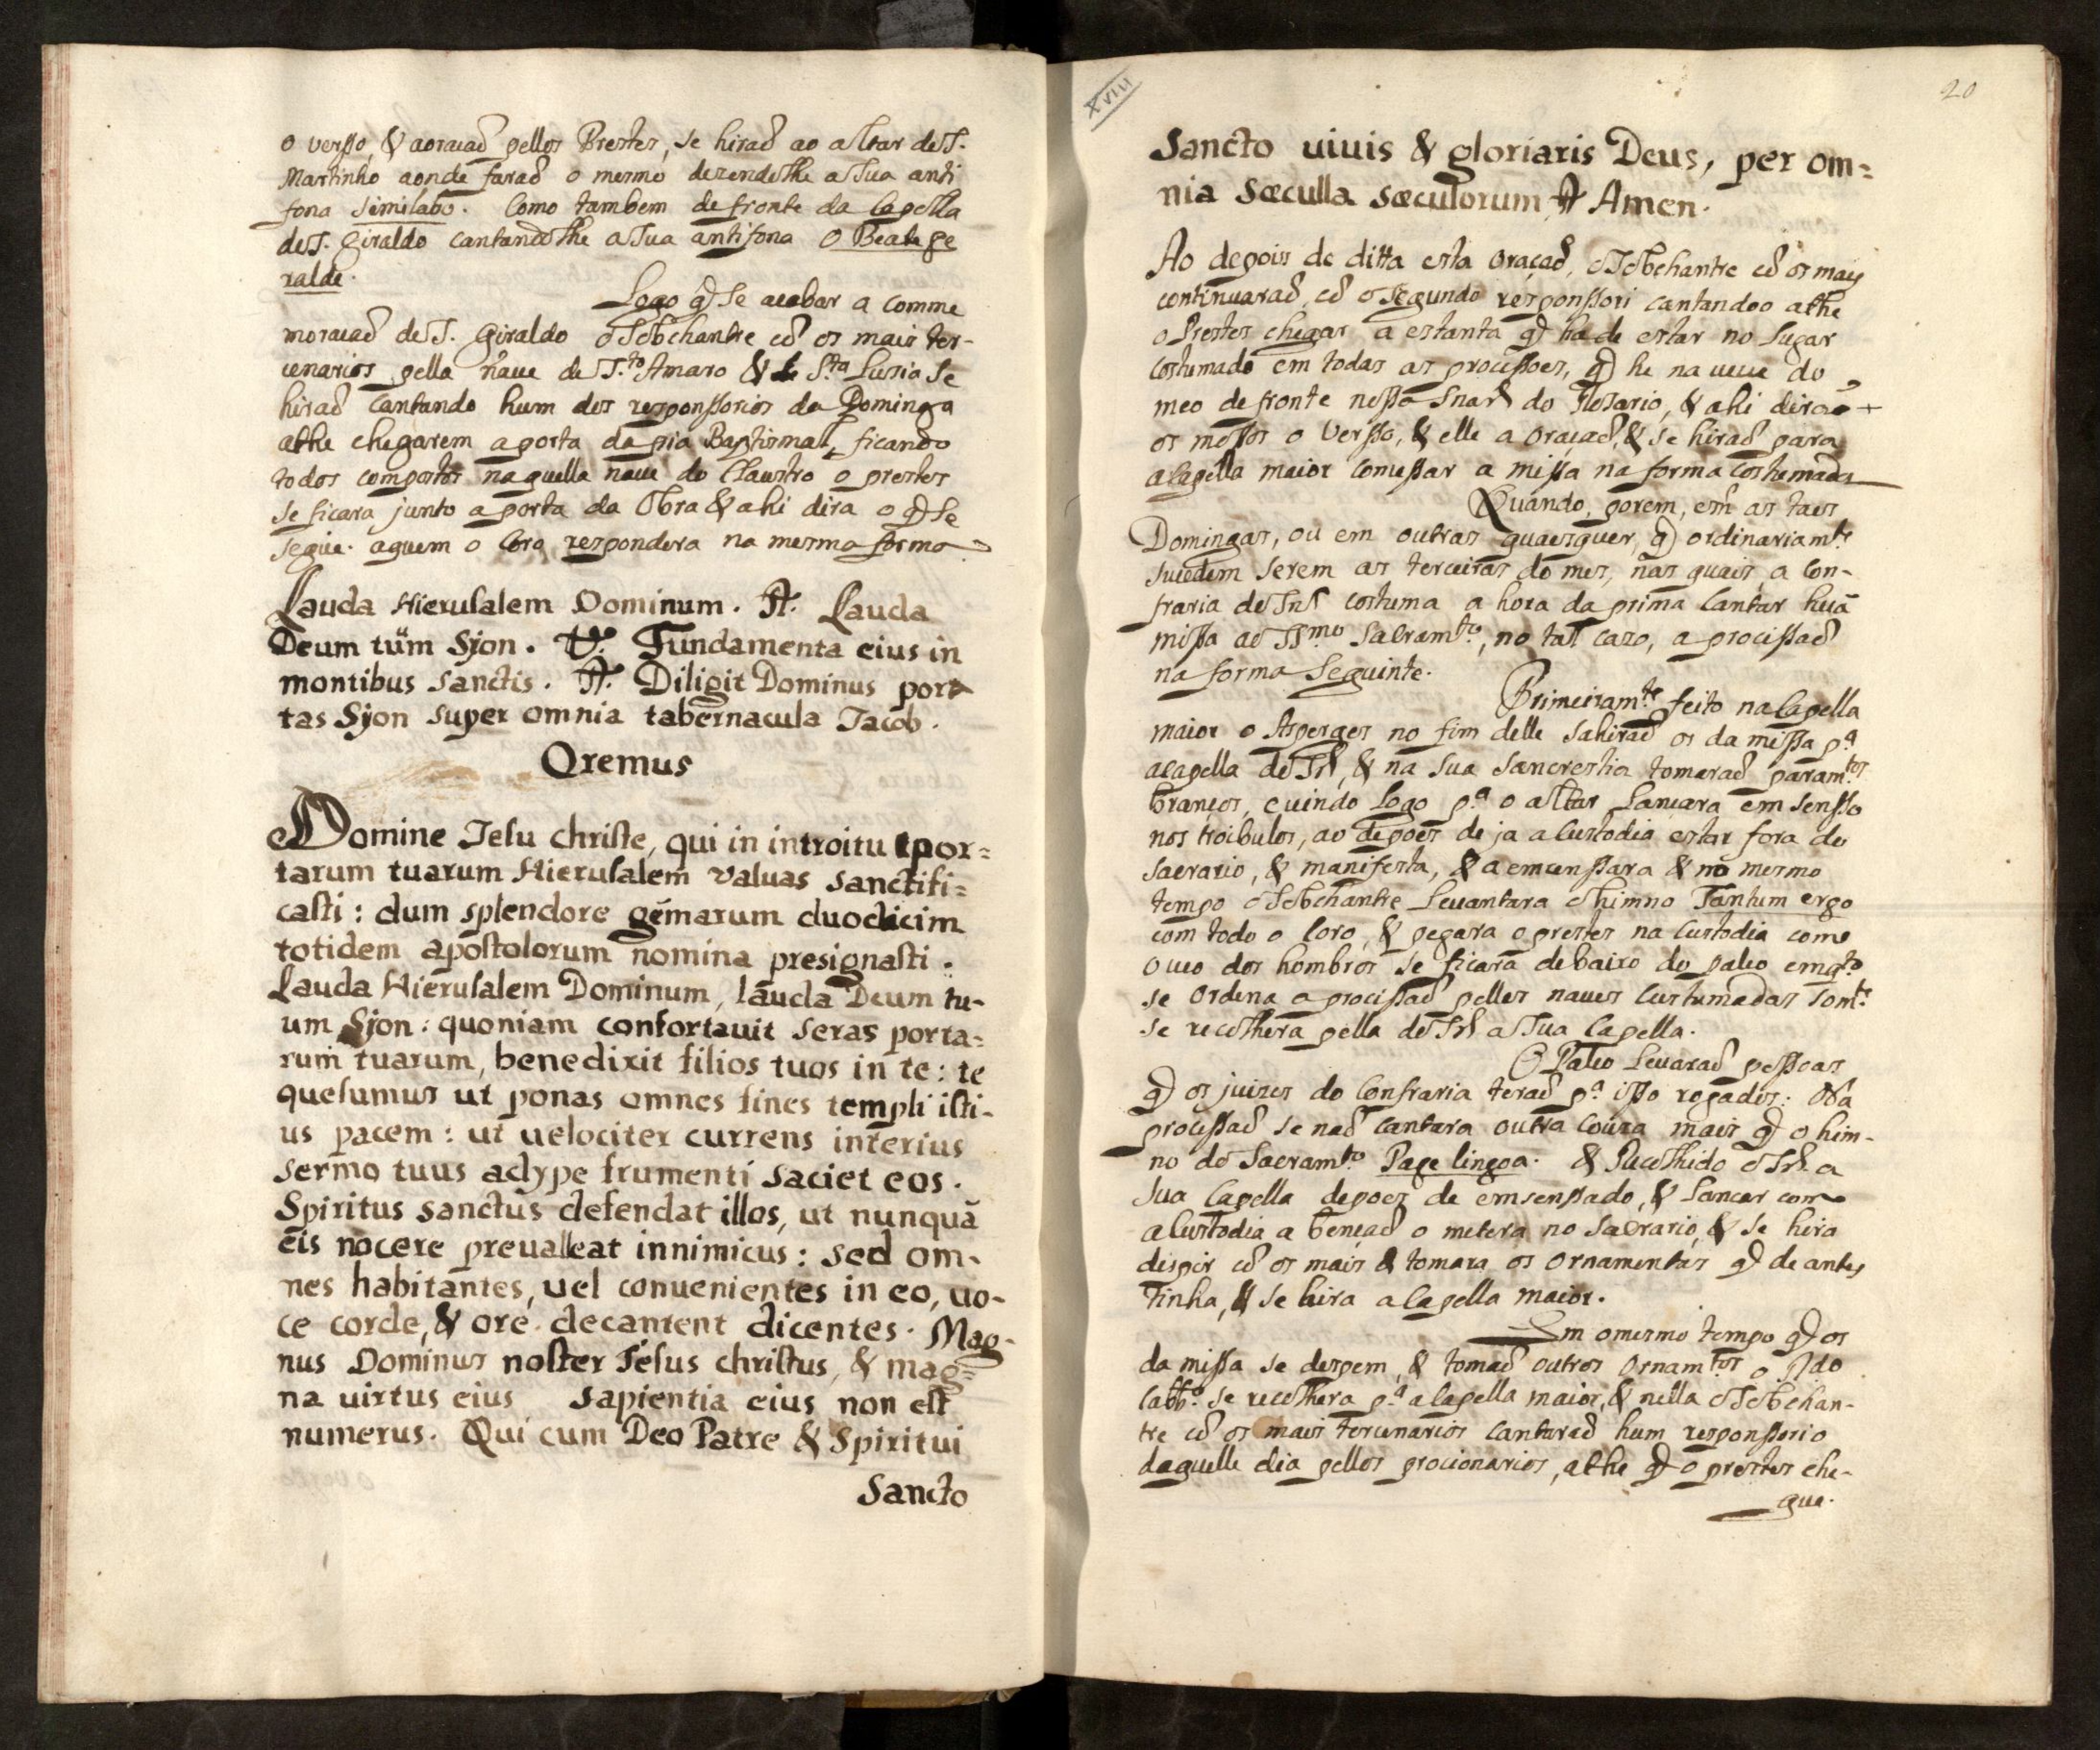 o versso, & aoraçaõ pellos Prestes, se hiraõ ao altar de S.
Martinho aonde faraõ o mesmo dezendolhe a sua anti
fona similabo. Como tambem de fronte da Capella
de S. Giraldo cantandolhe a sua antifona O Beate ge
ralde.
Logo q̃ se acabar a comme
moracaõ de S. Giraldo o Sobchantre cõ os mais ter-
cenarios pella naue de S.to Amaro & S.ta Lusia se
hiraõ Cantando hum dos responssorios da Dominga
athe chegarem a porta da pia Baptismal, ficando
todos compostos naquella naue do Claustro o prestes
se ficara junto a porta da Obra & ahi dira o q̃ se
segue. aquem o Coro respondera na mesma forma
Lauda Hierusalem Dominum. R. Lauda
Deum tuũm Sjon. V. Fundamenta eius in
montibus sanctis. R. Diligit Dominus por
tas Sjon super omnia tabernacula Jacob.
Oremus
Domine Jesu christe, qui in introitu por=
tarum tuarum Hierusalem valuas sanctifi=
casti: dum splendore gẽmarum duodicim
totidem apostolorum nomina presignasti.
Lauda Hierusalem Dominum, lauda Deum tu-
um Sjon: quoniam confortauit seras porta=
rum tuarum, benedixit filios tuos in te: te
quesumus ut ponas omnes fines templi isti-
us pacem: ut uelociter currens interius
sermo tuus adype frumenti saciet eos.
Spiritus sanctus defendat illos, ut nunquã
eis nocere preualleat innimicus: sed om-
nes habitantes, uel conuenientes in eo, uo-
ce corde, & ore decantent dicentes. Mag-
nus Dominus noster Jesus christus, & mag=
na uirtus eius sapientia eius non est
numerus. Qui cum Deo Patre & Spiritui
Sancto
XVIII
20
Sancto uiuis & gloriaris Deus, per om=
nia sæculla sæculorum R Amen.
Ao depois de ditta esta oraçaõ, o Sobchantre cõ os mais
continuaraõ, cõ o segundo responssori cantandoo athe
o Prestes chegar a estanta q̃ ha de estar no lugar
costumado em todas as procissoes, q̃ he na ueue do
meo de fronte nossa Snarã do Rosario, & ahi dirão +
os mossos o Versso, & elle a oraçaõ, & se hiraõ para
a Capella maior comessar a missa na forma costumada
Quando, porem, em as taes
Domingas, ou em outras quaesquer, q̃ ordinariam.te
sucedem serem as terceiras do mes, nas quais, a Con-
fraria do Snr̃ costuma a hora da prima Cantar huã
missa ao SS.mo Sacram.to, no tal cazo, a procissaõ
na forma Seguinte.
Primeiram.te feito na Capella
maior o Asperges no fim delle sahiraõ os da missa p.a
acapella do Sr̃, & na sua Sancrestia tomaraõ param.tos
brancos, e uindo Logo p.a o altar Lancara emsensso
nos troibulos, ao depoes de ja a Custodia estar fora do
sacrario, & manifesta, & a emcenssara & no mesmo
tempo o Sobchantre Leuantara o himno Tantum ergo
com todo o Coro, & pegara o prestes na Custodia como
o ueo dos hombros se ficara debaixo do paleo emq.to
se ordena a procissaõ pelles naues Custumadas Som.te
se recolhera pella do Sr̃ a sua Capella.
O Paleo Leuaraõ pessoas
q̃ os juizes do Confraria teraõ p.a isso rogados: Na
procissaõ se naõ cantara outra Couza mais q̃ o him-
no do Sacram.to Page lingoa. & Recolhido o Sr̃ a
sua Capella depoez de emsenssado, & Lancar com
a Custodia a bençaõ o metera no sacrario, & se hira
dispir cõ os mais & tomara os ornamentos q̃ de antes
Tinha, & se hira a Capella maior.
Em omesmo tempo q̃ os
da missa se despem, & tomaõ outros ornam.tos o R.do
Cabb.o se recolhera p.a a Capella maior, & nella o Sobchan-
tre cõ os mais tercenarios cantaraõ hum responssorio
daquelle dia pellos procionarios, athe q̃ o prestes che-
gue.